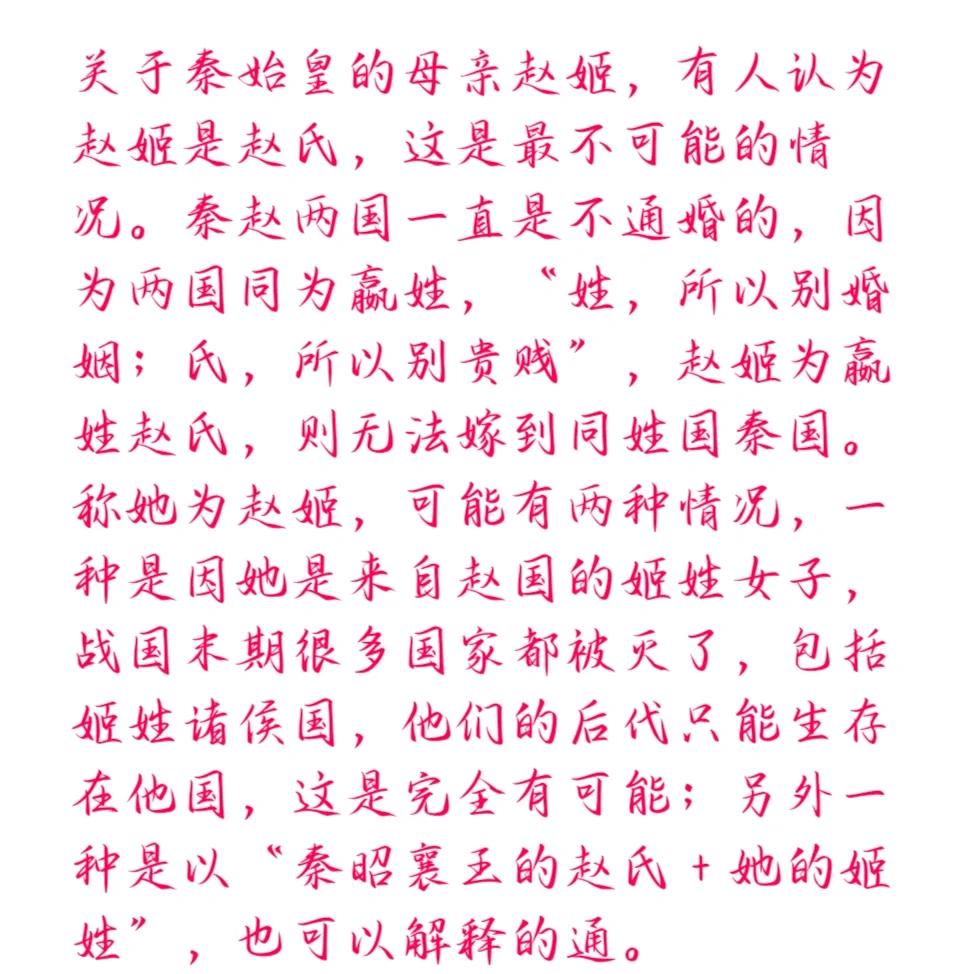 关于秦始皇的母亲赵姬，有人认为
赵姬是赵氏，这是最不可能的情
况。秦赵两国一直是不通婚的，因
为两国同为嬴姓，“姓，所以别婚
姻；氏，所以别贵贱”，赵姬为嬴
姓赵氏，则无法嫁到同姓国秦国。
称她为赵姬，可能有两种情况，一
种是因她是来自赵国的姬姓女子，
战国末期很多国家都被灭了，包括
姬姓诸侯国，他们的后代只能生存
在他国，这是完全有可能；另外一
种是以“秦昭襄王的赵氏+她的姬
姓”，也可以解释的通。